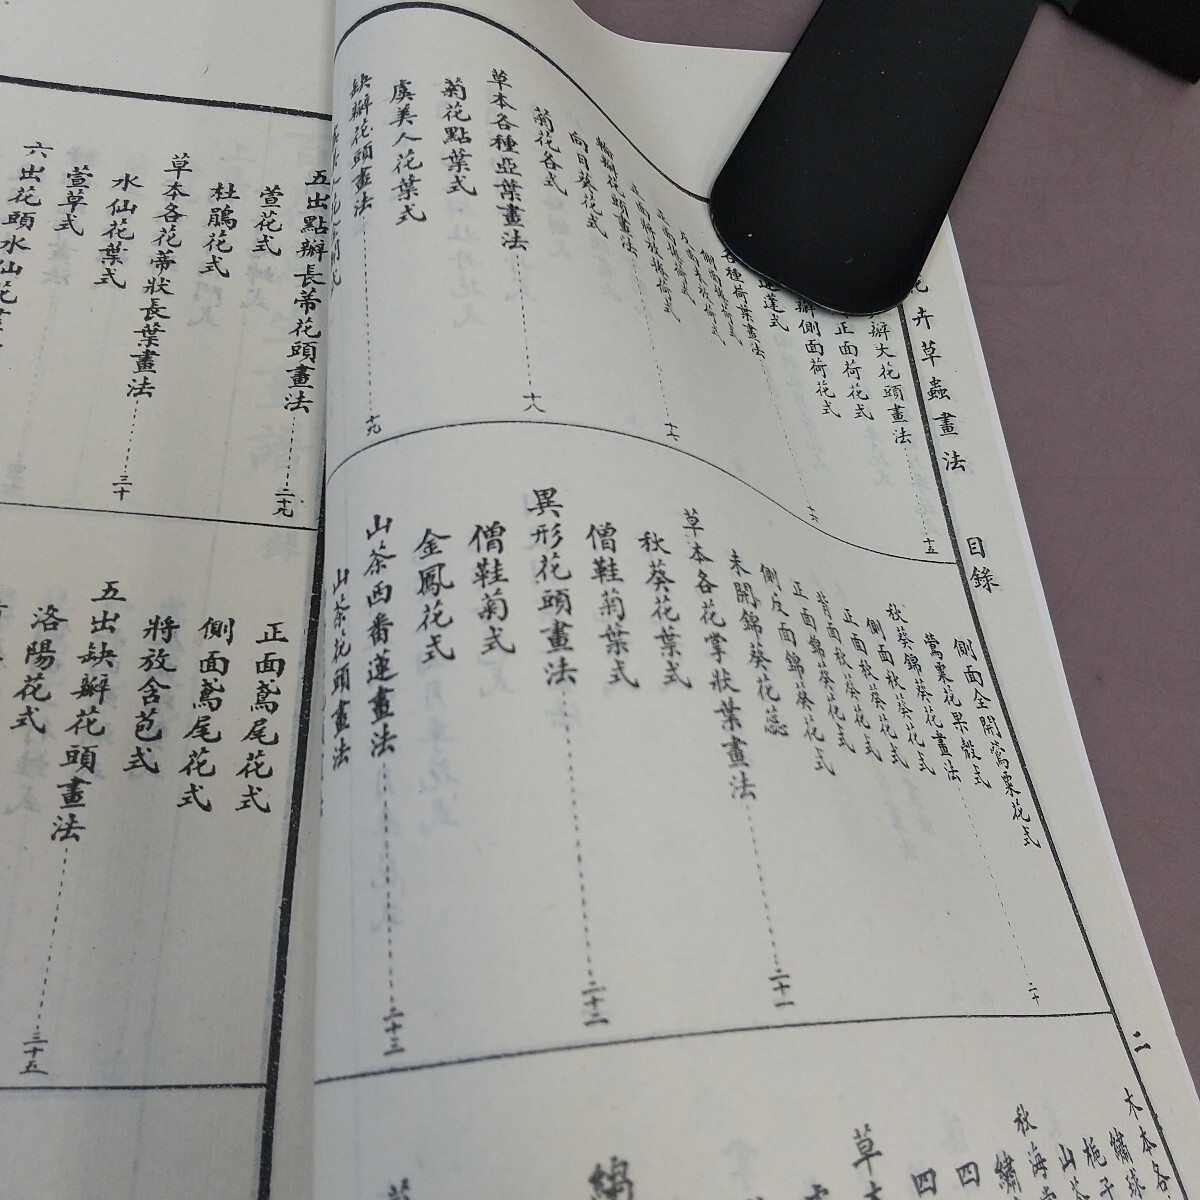 花卉草蟲畫法 目錄 二
瓣大花頭畫法 十五
正面荷花式
瓣側面荷花式
蓮蓬式
各種荷葉畫法 十六
側面
反面
正面
向日葵花式
菊花各式
草本各種亞葉畫法 十八
菊花點葉式
虞美人花葉式
缺瓣花頭畫法 十九
側面全開鶯粟花式
鶯粟花果殼式
秋葵錦葵花畫法 二十
側面秋葵花式
正面秋葵花式
背面秋葵花式
正面錦葵花式
側反面錦葵花式
未開錦葵花蕊
草本各花掌狀葉畫法 二十一
秋葵花葉式
僧鞋菊葉式
異形花頭畫法 二十二
僧鞋菊式
金鳳花式
山茶西番蓮畫法 二十三
山茶花頭畫法
木本各
繡球
梔子
山茶
秋海
繡
四
四
草
五出點瓣長蒂花頭畫法 二十九
萱花式
杜鵑花式
草本各花蒂狀長葉畫法 三十
水仙花葉式
萱草式
六出花頭水仙花
正面鳶尾花式
側面鳶尾花式
將放含苞式
五出缺瓣花頭畫法 三十五
洛陽花式